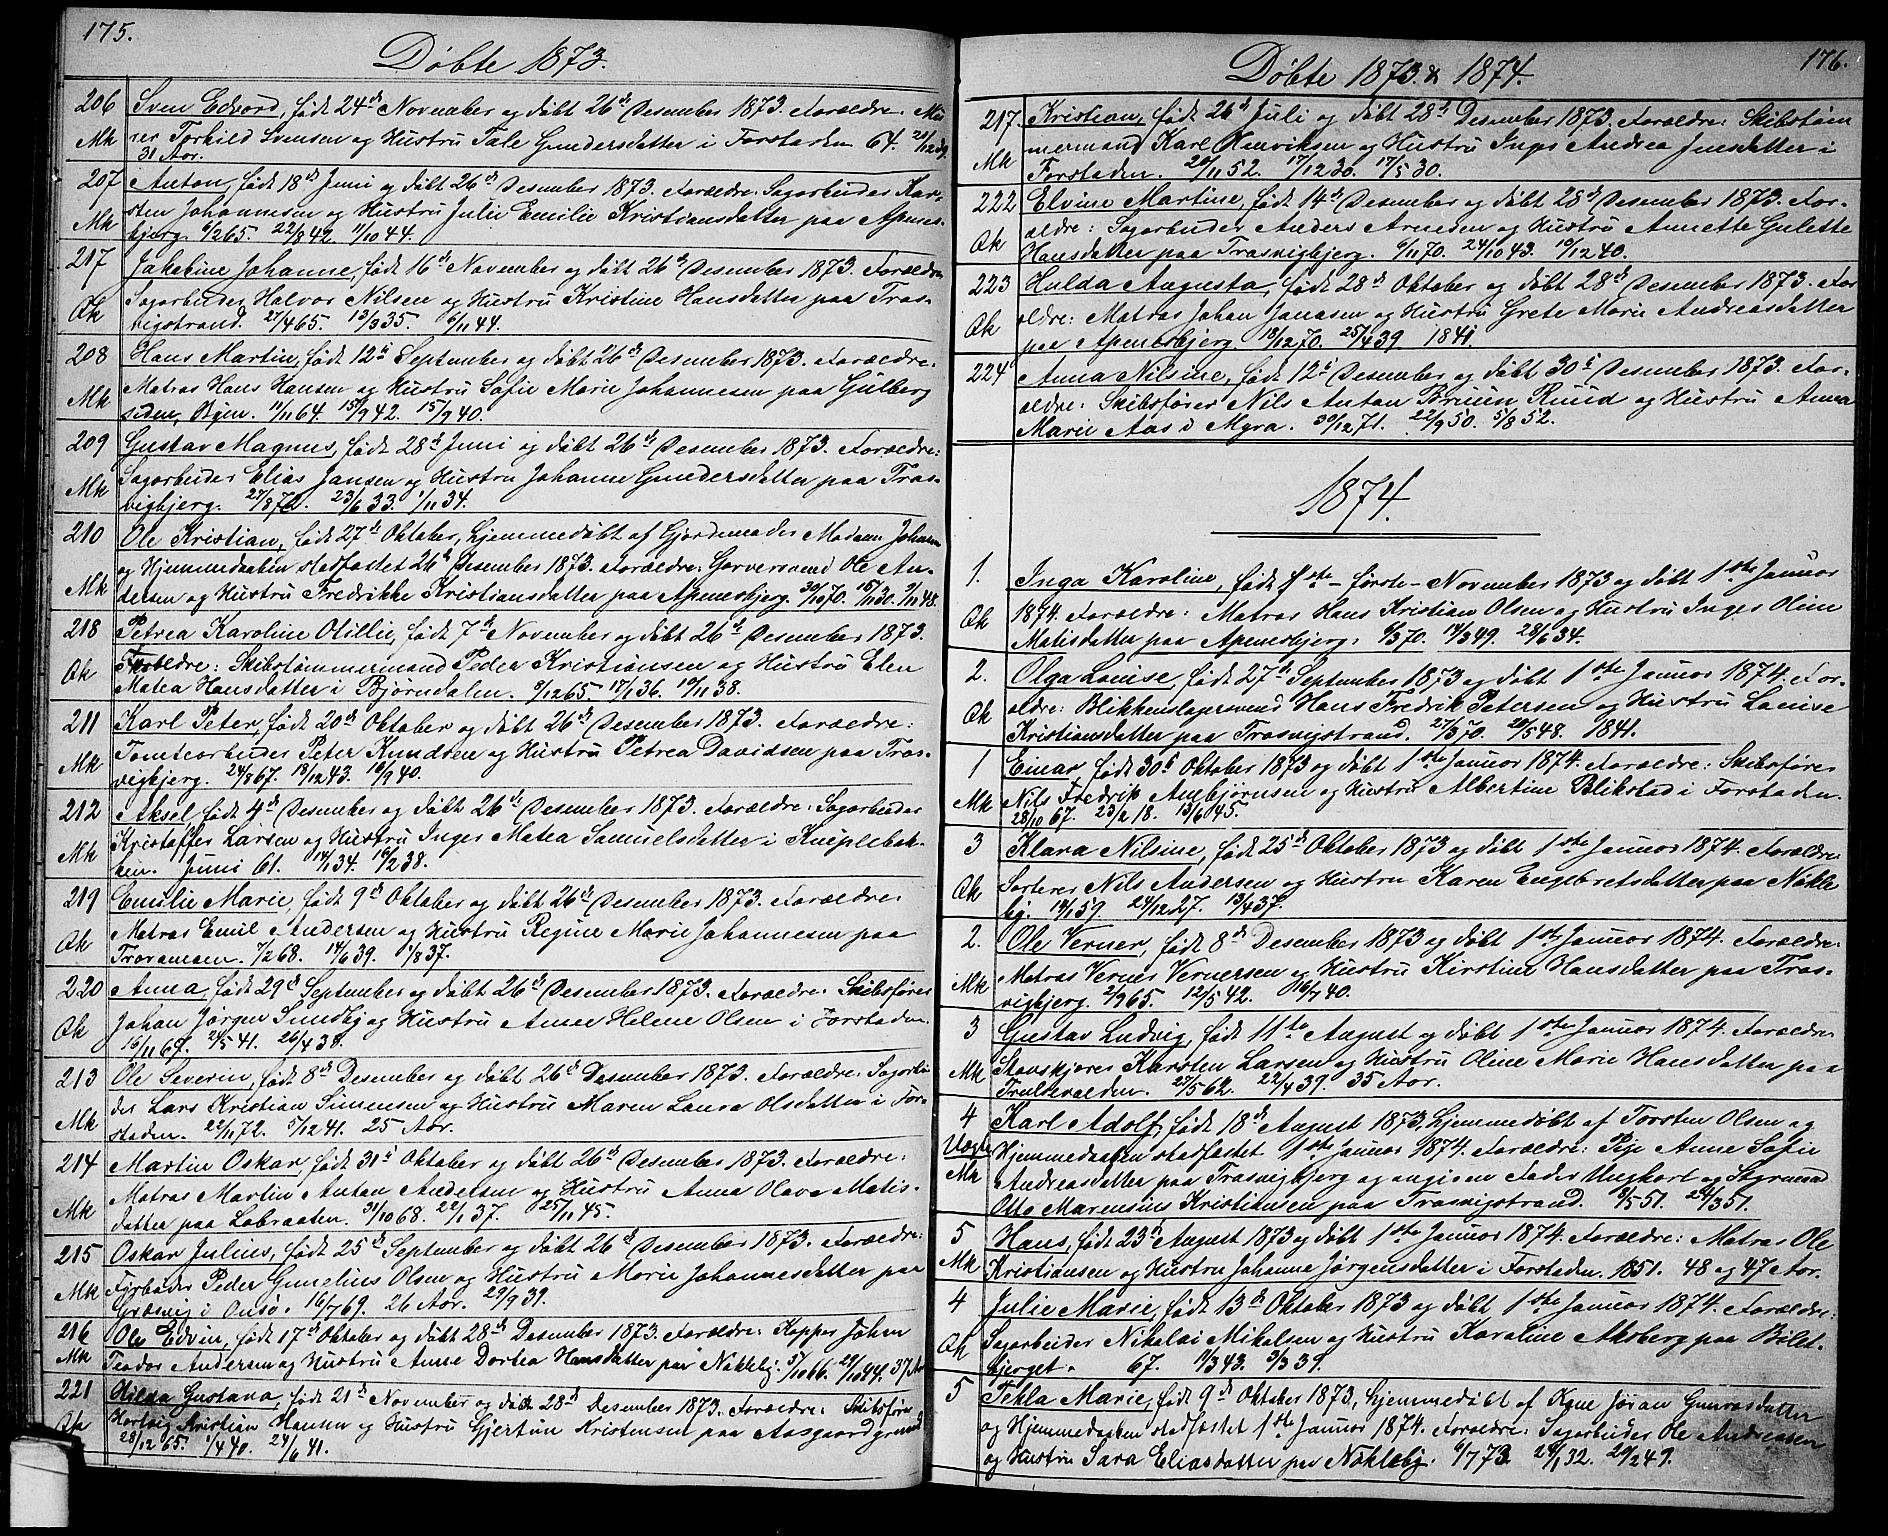 175.
Döbte 1873.
206 Sven Edvard, födt 24de November og döbt 26de Desember 1873. Forældre: Mu-
Mk rer Torkild Svensen og Hustru Tale Gundersdatter i Forstaden 64. 21/12 39.
31 Aar.
207 Anton, födt 18de Juni og döbt 26de Desember 1873. Forældre: Sagarbeider Kar-
Mk sten Johannesen og Hustru Julie Emilie Kristiansdatter paa Apenes-
bjerg. 6/2 65. 22/8 42. 11/10 44.
217 Jakobine Johanne, födt 16de November og döbt 26de Desember 1873. Forældre
Qk Sagarbeider Halvor Nilsen og Hustru Kristine Hansdatter paa Tras-
vigstrand. 27/4 65. 13/3 35. 6/11 44.
208 Hans Martin, födt 12te September og döbt 26de Desember 1873. Forældre:
Mk Matros Hans Hansen og Hustru Sofie Marie Johannesen paa Gulberg
siden, Glgen. 11/11 64. 15/9 42. 15/9 40.
209 Gustav Magnus, födt 28de Juni og döbt 26de Desember 1873. Forældre:
Mk Sagarbeider Elias Jansen og Hustru Johanne Gundersdatter paa Tras-
vigbjerg. 27/8 72. 23/6 33. 1/11 34.
210 Ole Kristian, födt 27de Oktober, hjemmedöbt af Gjordemoder Madam Johnsen
og Hjemmedaaben stadfæstet 26de Desember 1873. Forældre: Garversvend Ole An-
Mk dersen og Hustru Fredrikke Kristiansdatter paa Apenesbjerg. 30/10 70. 16/11 30. 9/11 48.
218 Petrea Karoline Otillie, födt 7de November og döbt 26de Desember 1873.
Qk Forældre: Skibstømmermand Peder Kristiansen og Hustru Elen
Matea Hansdatter i Bjørndalen. 8/12 65 17/1 36. 19/11 38.
211 Karl Peter, födt 20de Oktober og döbt 26de Desember 1873. Forældre:
Mk Tomtearbeider Peter Knudsen og Hustru Petrea Davidsen paa Tras-
vigbjerg. 24/8 67. 13/12 43. 19/9 40.
212 Aksel, födt 4de Desember og döbt 26de Desember 1873. Forældre: Sagarbeider
Mk Kristoffer Larsen og Hustru Inger Matea Samuelsdatter i Kneplebak-
ken. Juni 61. 14/1 34. 16/2 38.
219 Emilie Marie, födt 9de Oktober og döbt 26de Desember 1873. Forældre:
Qk Matros Emil Andersen og Hustru Regine Marie Johannesen paa
Traramsen. 7/2 68. 14/6 39. 1/8 37.
220 Anna, födt 29de September og döbt 26de Desember 1873. Forældre: Skibsfører
Qk Johan Jørgen Sundby og Hustru Anne Helene Olsen i Forstaden.
16/11 67. 21/5 41. 26/4 38.
213 Ole Severin, födt 8de Desember og döbt 26de Desember 1873. Forældre: Sagarbei-
Mk der Lars Kristian Simensen og Hustru Maren Laura Olsdatter i For-
staden. 22/11 72. 5/12 41. 25 Aar.
214 Martin Oskar, födt 31te Oktober og döbt 26de Desember 1873. Forældre:
Mk Matros Martin Anton Andersen og Hustru Anna Olava Matis-
datter paa Labraaten. 31/10 68. 22/1 37. 25/11 45.
215 Oskar Julius, födt 25de September og döbt 26de Desember 1873. Forældre:
Mk Fyrböder Peder Gunelius Olsen og Hustru Marie Johannesdatter paa
Græsvig i Onsö. 16/7 69. 26 Aar. 29/9 39.
216 Ole Edvin, födt 17de Oktober og döbt 28de Desember 1873. Forældre: Kopper Johan
Mk Teodor Andersen og Hustru Anne Dortea Hansdatter paa Nökleby. 5/10 66. 29/10 44. 37 Aar
221 Hilda Gustava, födt 21de November og döbt 28de Desember 1873. Forældre: Skibsfører
Qk Hartvig Kristian Hansen og Hustru Gjertine Kristensen paa Aasgaardgrund
28/12 65. 1/4 40. 24/6 41.
176.
Döbte 1873 & 1874.
217. Kristian, födt 26de Juli og döbt 28de Desember 1873. Forældre: Skibstøm
Mk mermand Karl Henriksen og Hustru Inger Andrea Jensdatter i
Forstaden. 20/11 52. 17/12 30. 17/5 30.
222 Elvine Martine, födt 14de Desember og döbt 28de Desember 1873. For-
Qk ældre: Sagarbeider Anders Arnesen og Hustru Annette Gulette
Hansdatter paa Trasvigbjerg. 6/11 70. 24/10 43. 19/12 40.
223 Hulda Augusta, födt 28de Oktober og döbt 28de Desember 1873. For
Qk ældre: Matros Johan Jonasen og Hustru Grete Marie Andreasdatter
paa Apenesbjerg. 18/12 70. 25/4 39 1841.
224 Anna Nilsine, födt 12te Desember og döbt 30te Desember 1873. For-
ældre: Skibsfører Nils Anton Bruun Ruud og Hustru Anna
Marie Aas i Myra. 30/12 71. 22/9 50. 5/8 52.
1874.
1. Inga Karoline, födt 1ste - förste - November 1873 og döbt 1ste Januar
Qk 1874. Forældre: Matros Hans Kristian Olsen og Hustru Inger Oline
Matisdatter paa Apenesbjerg. 6/3 70. 14/3 49. 28/6 34.
2. Olga Louise, födt 27de September 1873 og döbt 1ste Januar 1874. For-
Qk ældre: Blikkenslagersvend Hans Fredrik Petersen og Hustru Louise
Kristiansdatter paa Trasvigstrand. 27/3 70. 20/5 48. 1841.
1 Einar, födt 30te Oktober 1873 og döbt 1ste Januar 1874. Forældre: Skibsfører
Mk Nils Fredrik Ambjørnsen og Hustru Albertine Blikstad i Forstaden.
28/10 67. 23/2 18. 13/6 45.
3 Klara Nilsine, födt 25de Oktober 1873 og döbt 1ste Januar 1874. Forældre
Qk Sorterer Nils Andersen og Hustru Karen Engebretsdatter paa Nökle
by. 14/1 59. 24/12 27. 13/4 37.
2. Ole Verner, födt 8de Desember 1873 og döbt 1ste Januar 1874. Forældre:
Mk Matros Verner Vernersen og Hustru Kirstine Hansdatter paa Tras-
vigbjerg. 2/9 65. 12/5 42. 16/7 40.
3 Gustav Ludvig, födt 11te August og döbt 1ste Januar 1874. Forældre:
Mk Stavskjører Karsten Larsen og Hustru Oline Marie Hansdatter paa
Trulsevolden. 27/5 62. 22/4 39. 35 Aar.
4 Karl Adolf, födt 18de August 1873, hjemmedöbt af Torsten Olsen og
Uægte Hjemmedaaben stadfæstet 1ste Januar 1874. Forældre: Pige Anne Sofie
Mk Andreasdatter paa Trasvigbjerg og angiven Fader Ungkarl og Styrmand
Otto Marensius Kristiansen paa Trasvigstrand. 8/5 51. 24/3 51.
5 Hans, födt 23de August 1873 og döbt 1ste Januar 1874. Forældre: Matros Ole
Mk Kristiansen og Hustru Johanne Jørgensdatter i Forstaden. 1851. 48 og 47 Aar.
4 Julie Marie, födt 13de Oktober 1873 og döbt 1ste Januar 1874. Forældre:
Qk Sagarbeider Nikolai Mikalsen og Hustru Karoline Moberg paa Bilet-
bjerget. 67. 9/3 43. 3/3 39.
5 Tekla Marie, födt 9de Oktober 1873, hjemmedöbt af Kone Jøran Gunersdatter
og Hjemmedaaben stadfæstet 1ste Januar 1874. Forældre: Sagarbeider Ole Andreasen
og Hustru Sara Eliasdatter paa Nökleby. 6/7 73. 28/1 32. 29/2 49.